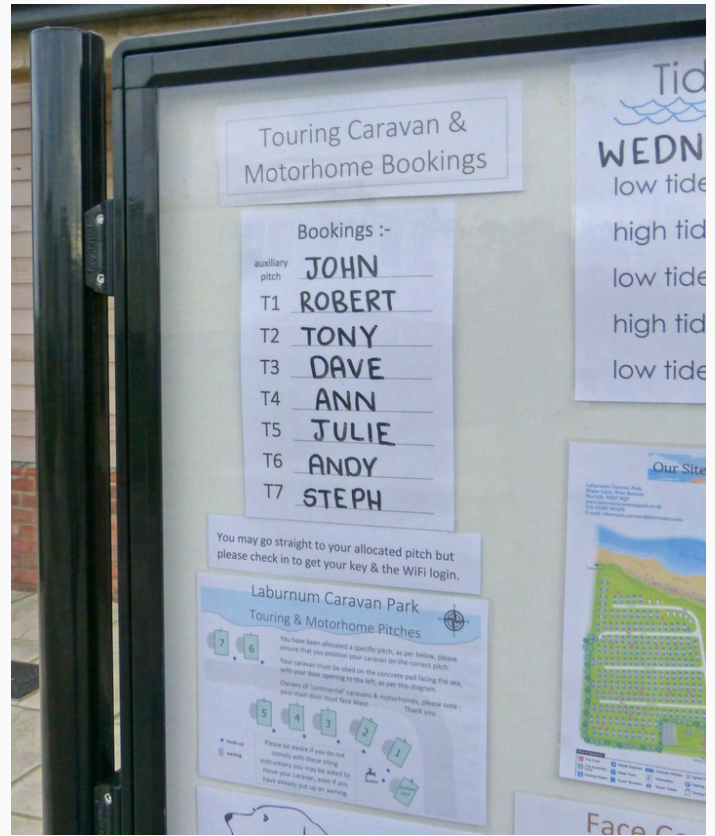 Touring Caravan &
Motorhome Bookings
Bookings :-
auxiliary
pitch JOHN
T1 ROBERT
T2 TONY
T3 DAVE
T4 ANN
T5 JULIE
T6 ANDY
T7 STEPH
You may go straight to your allocated pitch but
please check in to get your key & the WiFi login.
Laburnum Caravan Park
Touring & Motorhome Pitches
You have been allocated a specific pitch, as per below, please
ensure that you position your caravan on the correct pitch.
Your caravan must be sited on the concrete pad facing the sea,
with your door opening to the left, as per this diagram.
Owners of 'continental' caravans & motorhomes, please note :
your main door must face West. Thank you.
7 6
5 4 3 2 1
hook-up
awning
Please be aware if you do not
comply with these siting
instructions you may be asked to
move your caravan, even if you
have already put up an awning.
water
Tid
WEDN
low tide
high tid
low tide
high tid
low tide
Our Site
Laburnum Caravan Park
Face Co